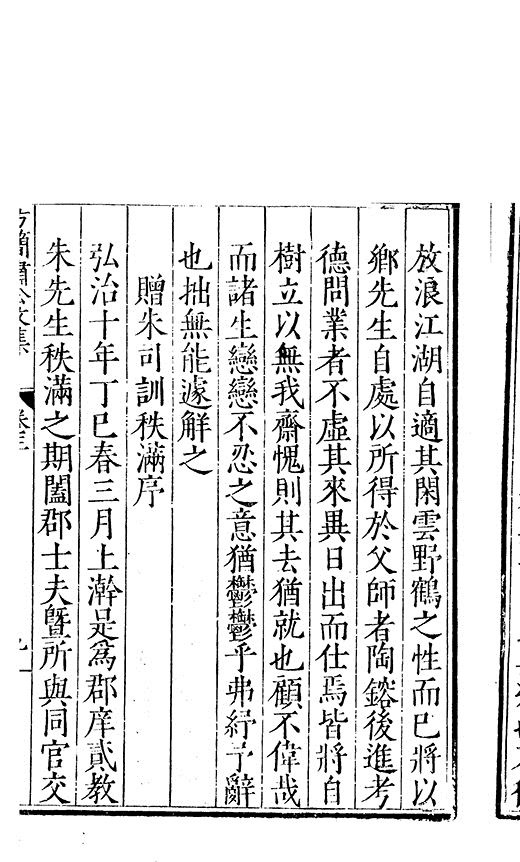 放浪江湖自適其閑雲野鶴之性而已將以
鄉先生自處以所得於父師者陶鎔後進考
德問業者不虛其來異日出而仕焉皆將自
樹立以無我齋愧則其去猶就也顧不偉哉
而諸生戀戀不忍之意猶鬱鬱乎弗紓予辭
也拙無能遽解之
贈朱司訓秩滿序
弘治十年丁巳春三月上澣是為郡庠貳教
朱先生秩滿之期闔郡士夫暨所與同官交
方簡肅公文集
卷三